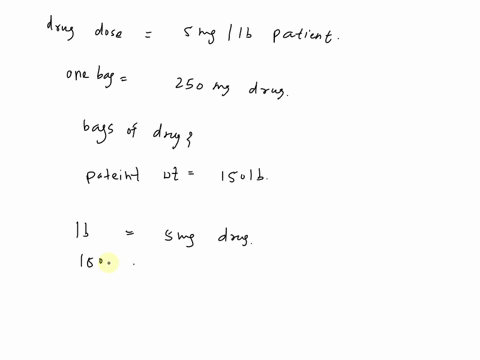 drug dose = 5 mg / lb patient.
one bag = 250 mg drug.
bags of drug }
pateint wt = 150 lb.
lb = 5mg drug.
150 .